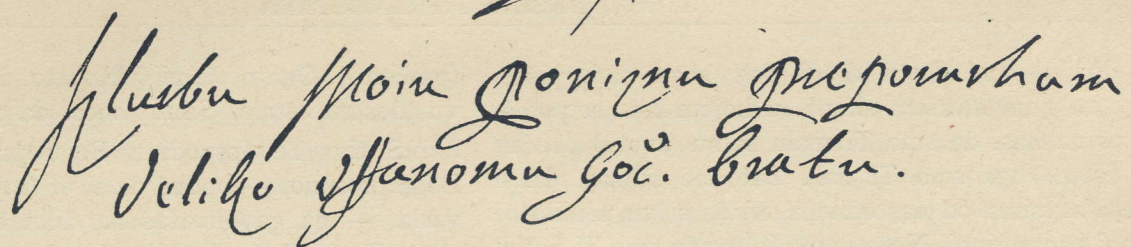 Slusbu Moiu Poniznu Preporucham
Veliko Vffanomu Goč. bratu.